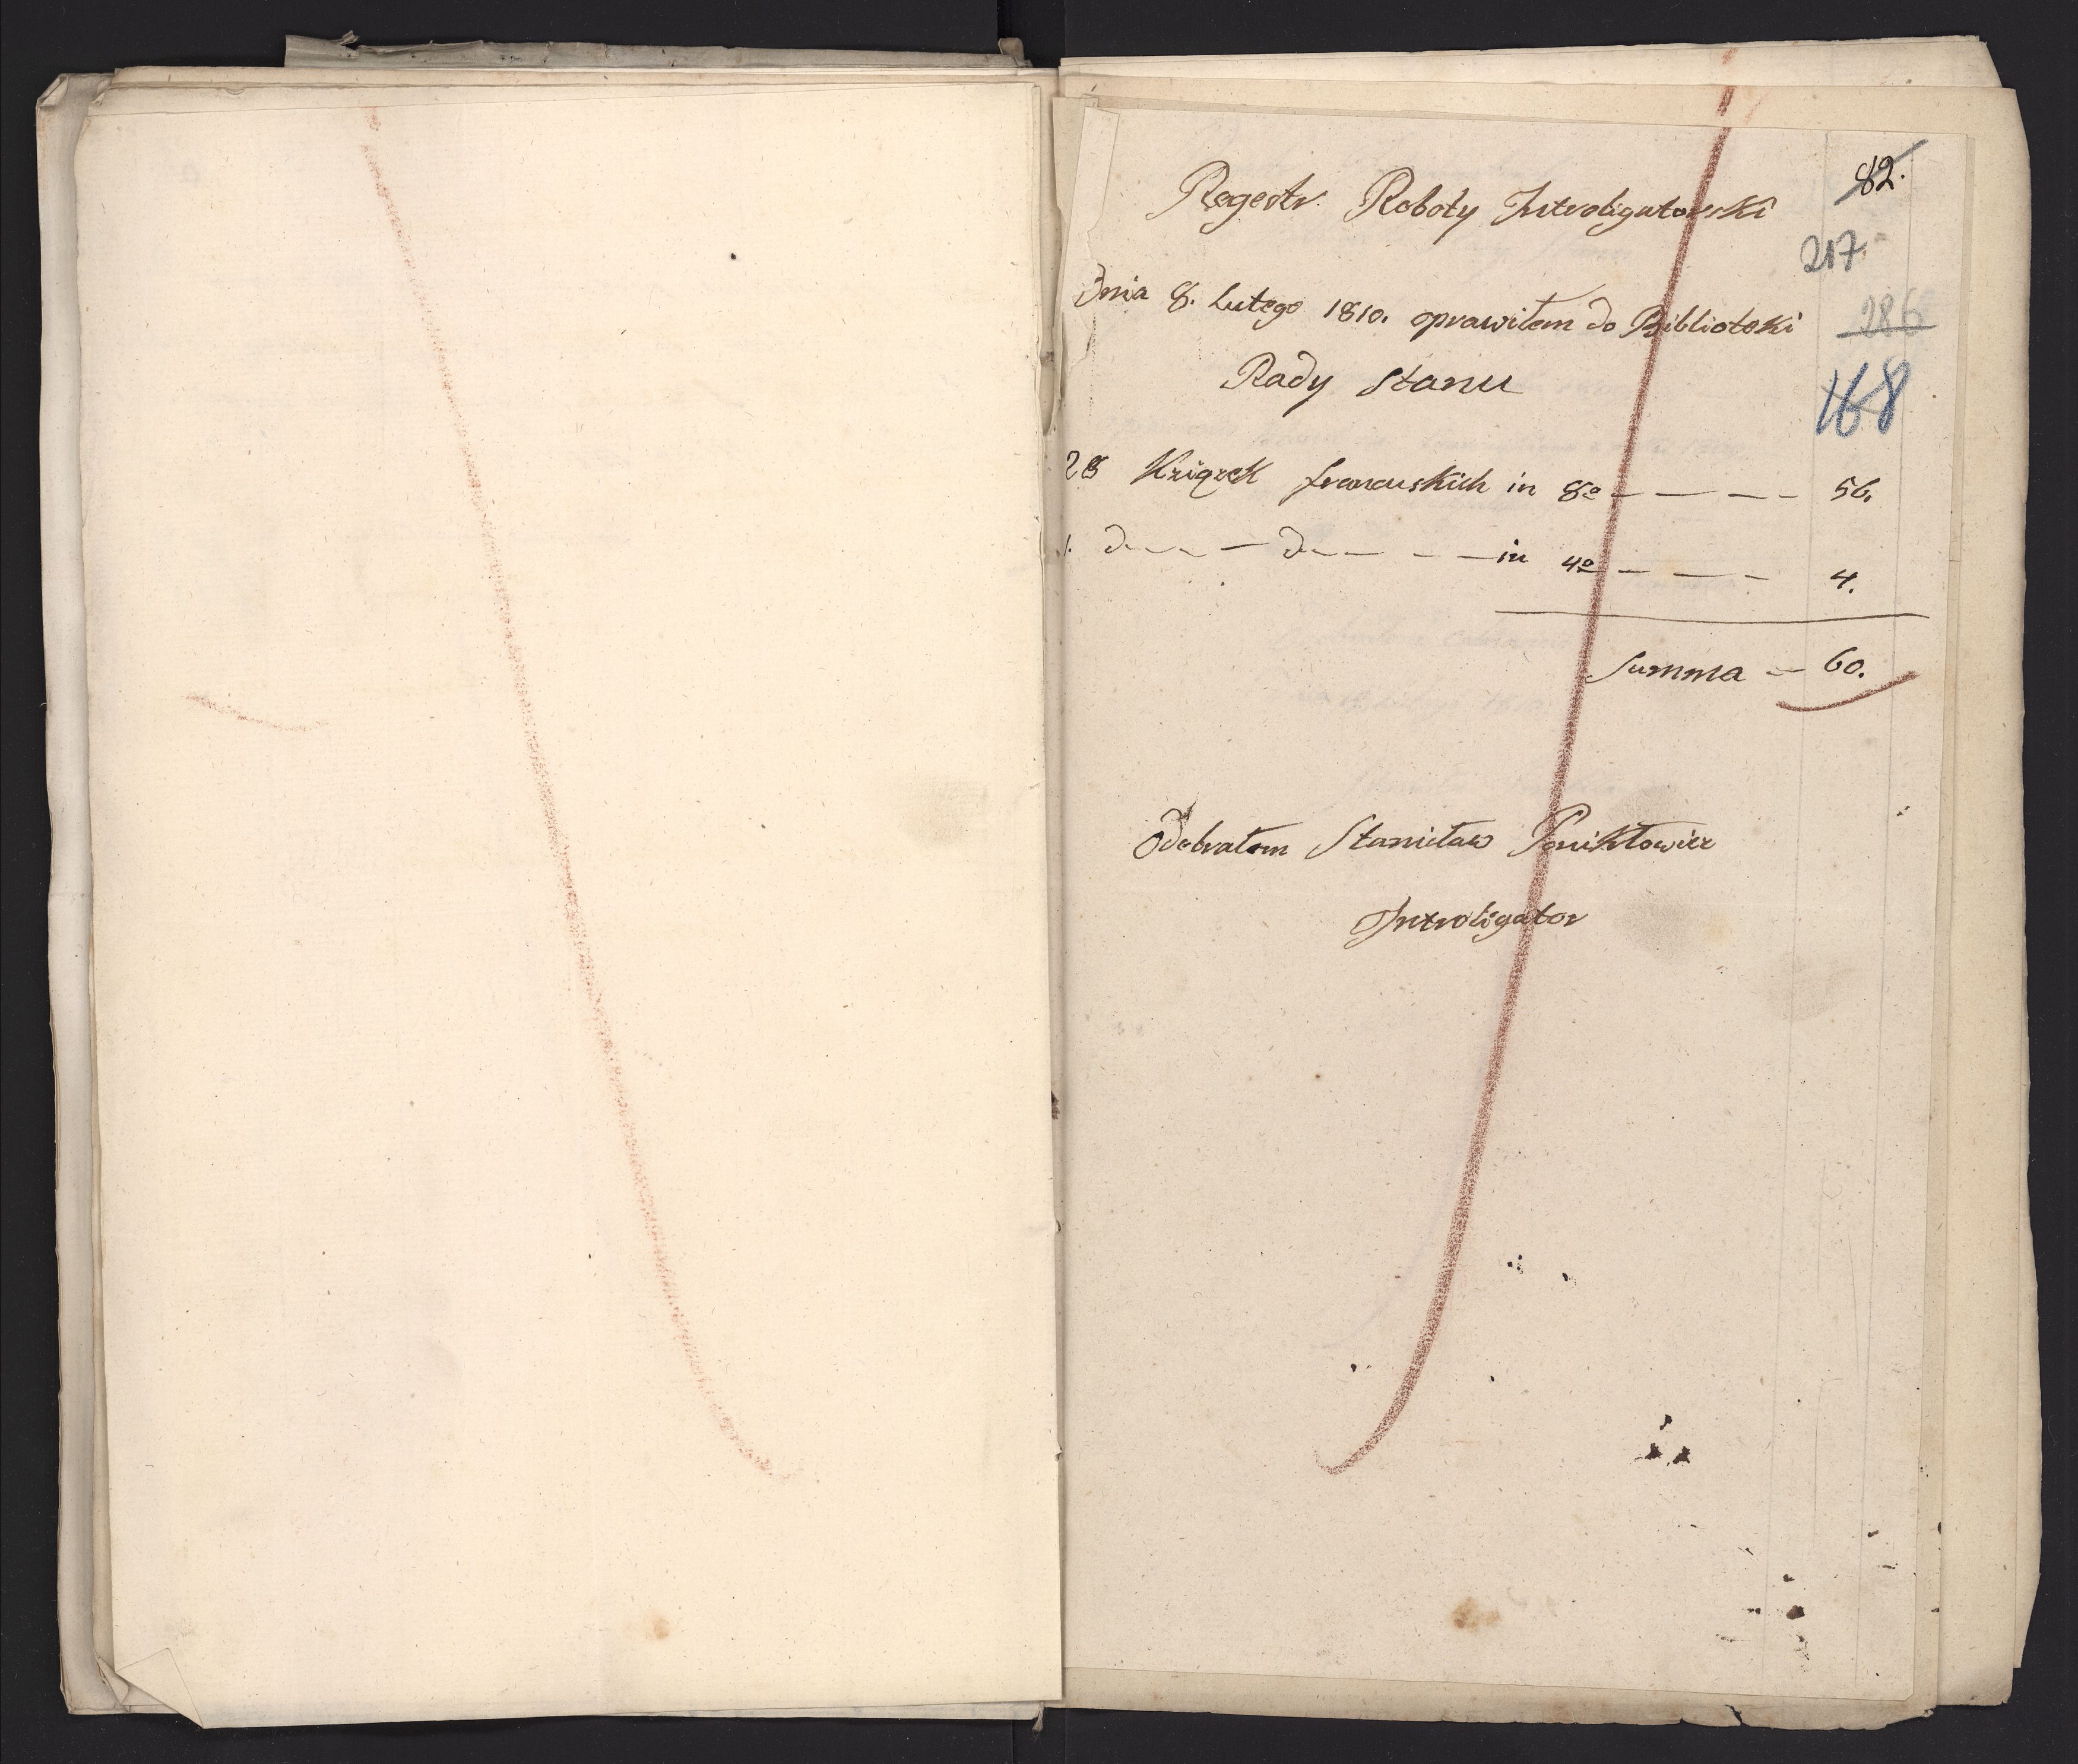 82.
Regestr Roboty Introligatorski
217.
Dnia 8. Lutego 1810. oprawiłem do Biblioteki
286
Rady Stanu
168
28 Ksiązek francuskich in 8o — — — — 56.
1. d — — — d — — — — in 4o — — — 4.
Summa — 60.
Odebrałem Stanisław Ponikłowicz
Introligator